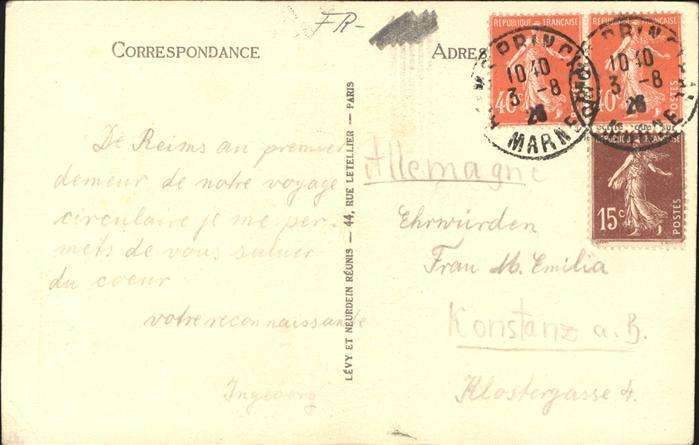 FR-
CORRESPONDANCE
ADRES
RÉPUBLIQUE FRANÇAISE
40c
POSTES
RÉPUBLIQUE FRANÇAISE
40c
POSTES
RÉPUBLIQUE FRANÇAISE
15c
POSTES
PRINC
10 40
3 -8
26
MARNE
PRINCIPAL
10 40
3 -8
26
MARNE
De Reims au premier
demeur de notre voyage
circulaire je me per-
mets de vous saluer
du coeur
votre reconnaissante
Ingeborg
LÉVY ET NEURDEIN RÉUNIS — 44, RUE LETELLIER — PARIS
Allemagne
Ehrwürden
Frau M. Emilia
Konstanz a. B.
Klostergasse 4.